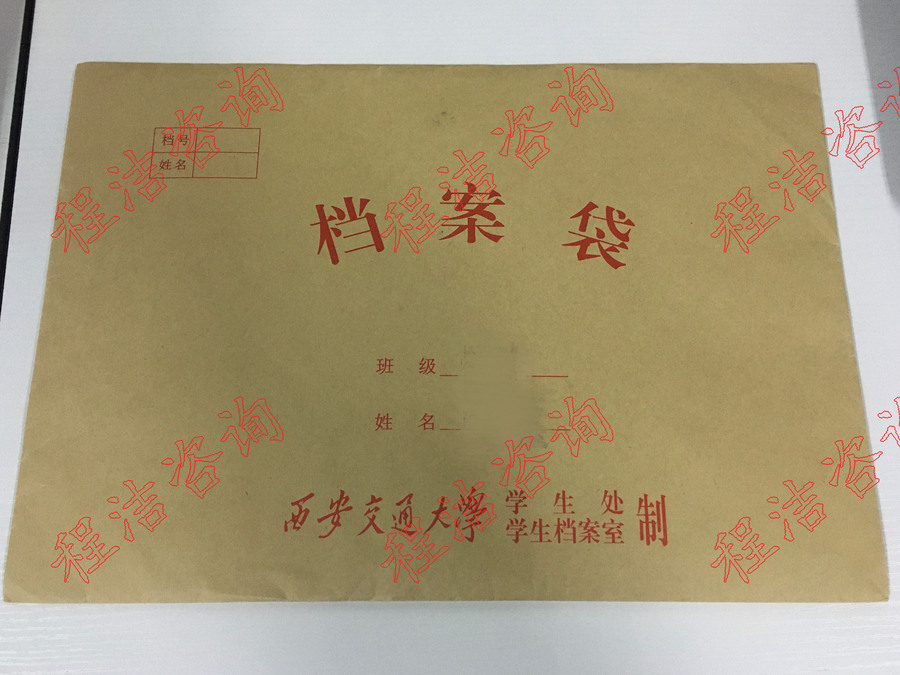 档号
姓名
档案袋
班 级
姓 名
西安交通大学 学生处 制
学生档案室
程洁咨询
程洁咨询
程洁咨询
程洁咨询
程洁咨询
程洁咨询